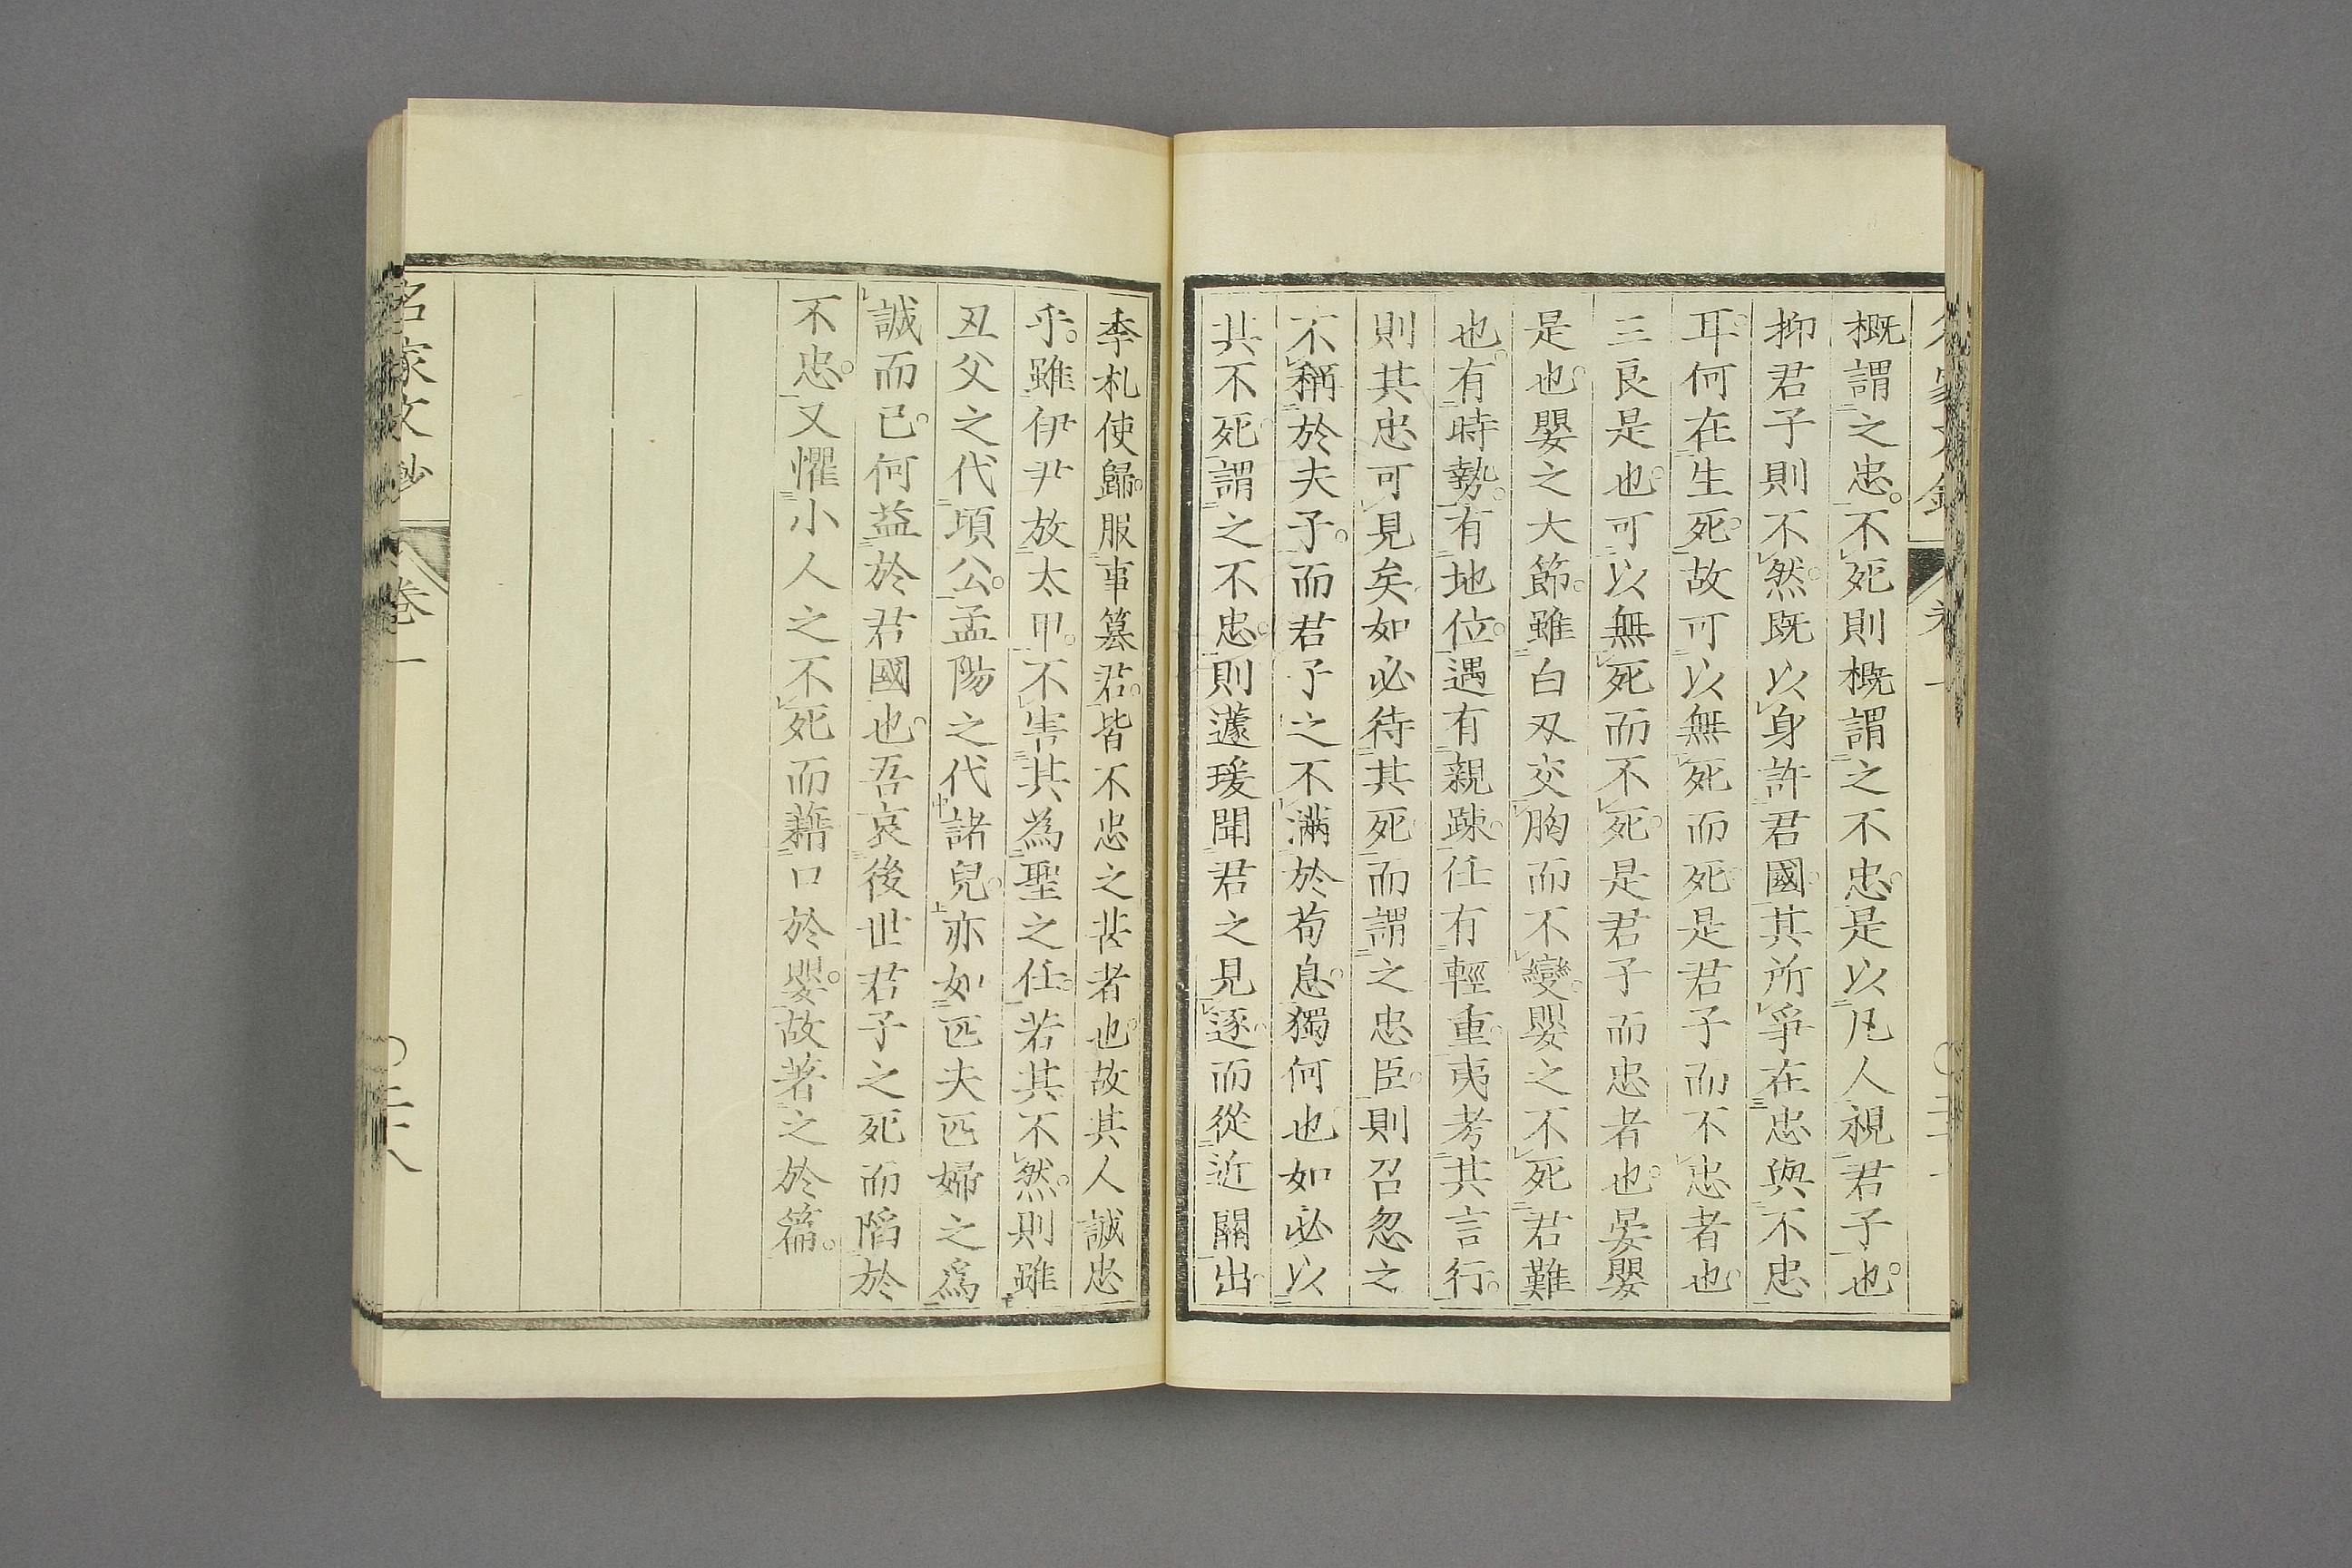 概謂之忠。不死則概謂之不忠。是以凡人視君子也。
抑君子則不然。既以身許君國。其所爭在忠與不忠
耳。何在生死。故可以無死而死。是君子而不忠者也。
三良是也。可以無死而不死。是君子而忠者也。晏嬰
是也。嬰之大節。雖白刃交胸而不變。嬰之不死君難
也。有時勢。有地位。遇有親踈。任有輕重。夷考其言行。
則其忠可見矣。如必待其死。而謂之忠臣。則召忽之
不稱於夫子。而君子之不滿於荀息。獨何也。如必以
其不死。謂之不忠。則蘧瑗聞君之見逐。而從近關出。
季札使歸。服事簒君。皆不忠之甚者也。故其人誠忠
乎。雖伊尹放太甲。不害其為聖之任。若其不然。則雖
丑父之代頃公。孟陽之代諸兒。亦如匹夫匹婦之爲
誠而已。何益於君國也。吾哀後世君子之死而陷於
不忠。又懼小人之不死而藉口於嬰。故著之於篇。
名家文鈔
卷一